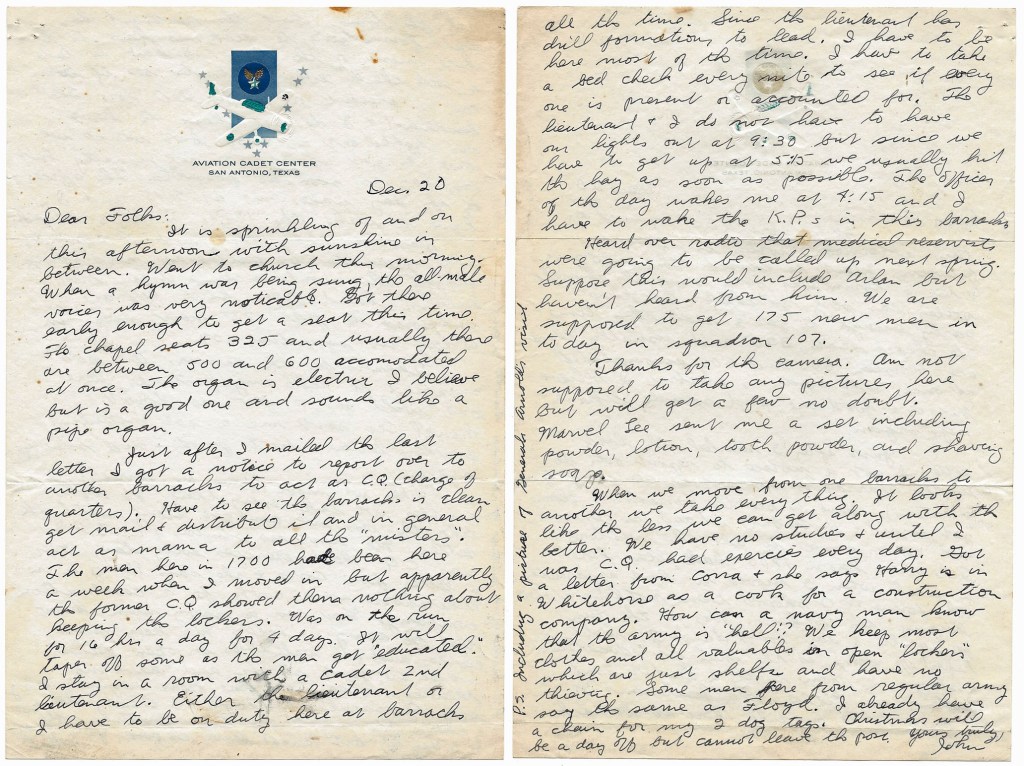 AVIATION CADET CENTER
SAN ANTONIO, TEXAS
Dec. 20
Dear Folks:
It is sprinkling of and on
this afternoon with sunshine in
between. Went to church this morning.
When a hymn was being sung, the all male
voices was very noticable. Got there
early enough to get a seat this time.
The chapel seats 325 and usually there
are between 500 and 600 accomodated
at once. The organ is electric I believe
but is a good one and sounds like a
pipe organ.
Just after I mailed the last
letter I got a notice to report over to
another barracks to act as C.Q. (charge of
quarters). Have to see the barracks is clean
get mail & distribute it and in general
act as mama to all the "misters".
The men here in 1700 had been here
a week when I moved in but apparently
the former C.Q showed them nothing about
keeping the lockers. Was on the run
for 16 hrs a day for 4 days. It will
taper off some as the men get "educated."
I stay in a room with a cadet 2nd
lieutenant. Either the lieutenant or
I have to be on duty here at barracks
all the time. Since the lieutenant has
drill formations to lead. I have to be
here most of the time. I have to take
a bed check every nite to see if every
one is present or accounted for. The
lieutenant & I do not have to have
our lights out at 9:30 but since we
have to get up at 5:15 we usually hit
the hay as soon as possible. The officer
of the day wakes me at 4:15 and I
have to wake the K.P.s in this barracks
Heard over radio that medical reservists
were going to be called up next spring.
Suppose this would include Arlan but
haven't heard from him. We are
supposed to get 175 new men in
to day in squadron 107.
Thanks for the camera. Am not
supposed to take any pictures here
but will get a few no doubt.
Marvel See sent me a set including
powder, lotion, tooth powder, and shaving
soap.
When we move from one barracks to
another we take every thing. It looks
like the less we can get along with the
better. We have no studies & until I
was C.Q. had exercies every day. Got
a letter from Corra & she says Harry is in
Whitehorse as a cook for a construction
company. How can a navy man know
that the army is "hell"? We keep most
clothes and all valuables in open "lockers"
which are just shelfs and have no
thieving. Some men here from regular army
say the same as Floyd. I already have
a chain for my 2 dog tags. Christmas will
be a day off but cannot leave the post. Yours truly,
John
P.S. Including a picture of General Arnolds visit